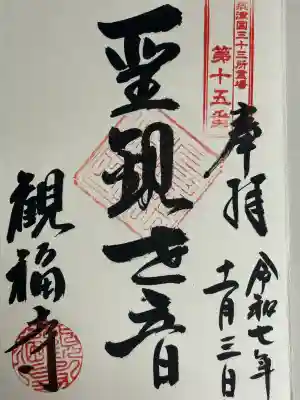 津国三十三所霊場
第十五番
奉拝
令和七年
十一月三日
聖観世音
観福寺